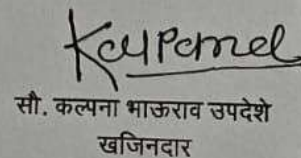 Kalpana
सौ. कल्पना भाऊराव उपदेशे
खजिनदार